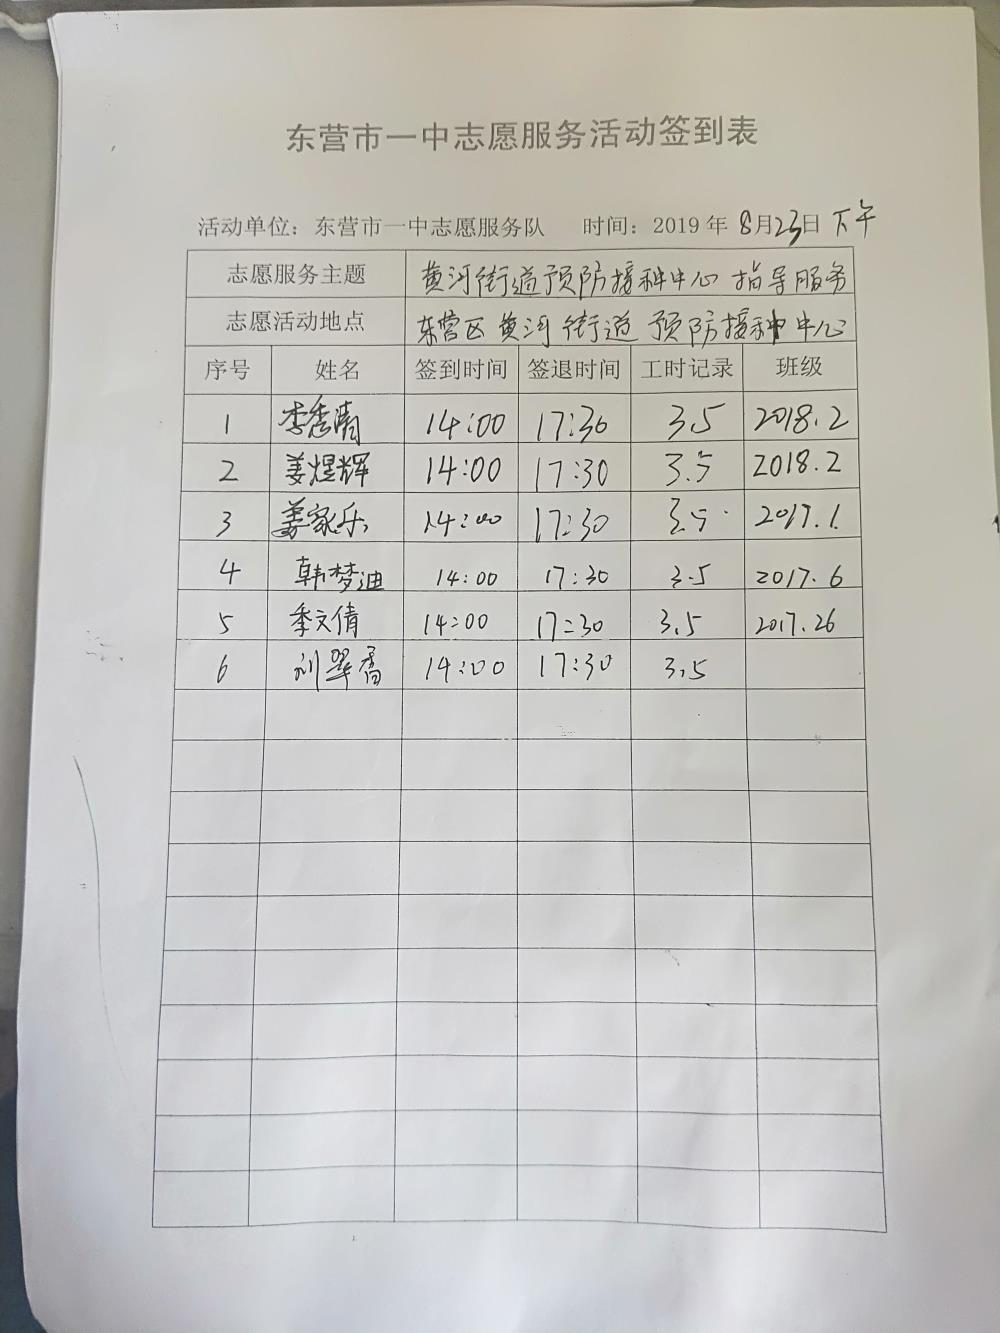 东营市一中志愿服务活动签到表
活动单位：东营市一中志愿服务队 时间：2019年8月23日下午
志愿服务主题 黄河街道预防接种中心 指导服务
志愿活动地点 东营区黄河街道预防接种中心
序号 姓名 签到时间 签退时间 工时记录 班级
1 李秀清 14:00 17:30 3.5 2018.2
2 姜煜辉 14:00 17:30 3.5 2018.2
3 姜家乐 14:00 17:30 3.5 2017.1
4 韩梦迪 14:00 17:30 3.5 2017.6
5 季文倩 14:00 17:30 3.5 2017.26
6 刘翠香 14:00 17:30 3.5